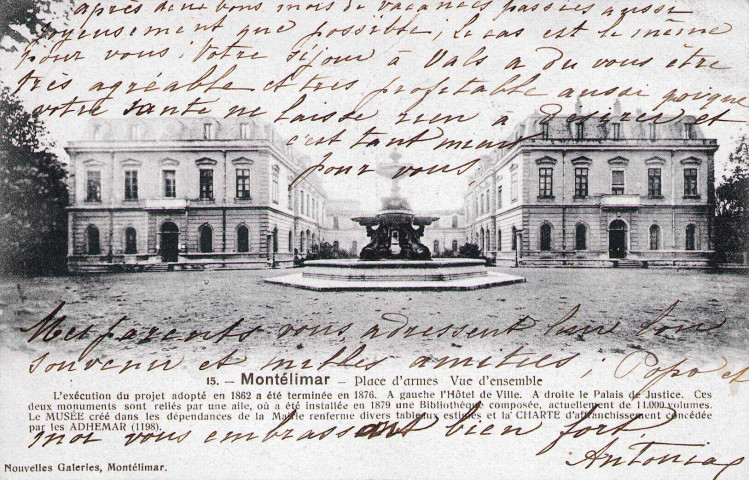 après deux bons mois de vacances passées aussi
joyeusement que possible; le cas est le même
pour vous; Votre séjour à Vals a du vous être
très agréable et très profitable aussi poique
votre santé ne laisse rien à désirer et
c'est tant mieux
pour vous
Mes parents vous adressent leur bon
souvenir et milles amitiés. Popo et
15. - Montélimar - Place d'armes Vue d'ensemble
L'exécution du projet adopté en 1862 a été terminée en 1876. A gauche l'Hôtel de Ville. A droite le Palais de Justice. Ces
deux monuments sont reliés par une aile, où a été installée en 1879 une Bibliothèque composée, actuellement de 11.000 volumes.
Le MUSÉE créé dans les dépendances de la Mairie renferme divers tableaux estimés et la CHARTE d'affranchissement concédée
par les ADHEMAR (1198).
moi vous embrassont bien fort.
Antonia
Nouvelles Galeries, Montélimar.